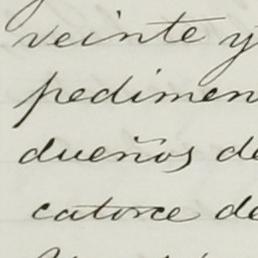 veinte y
pedimen
dueños de
catorce de